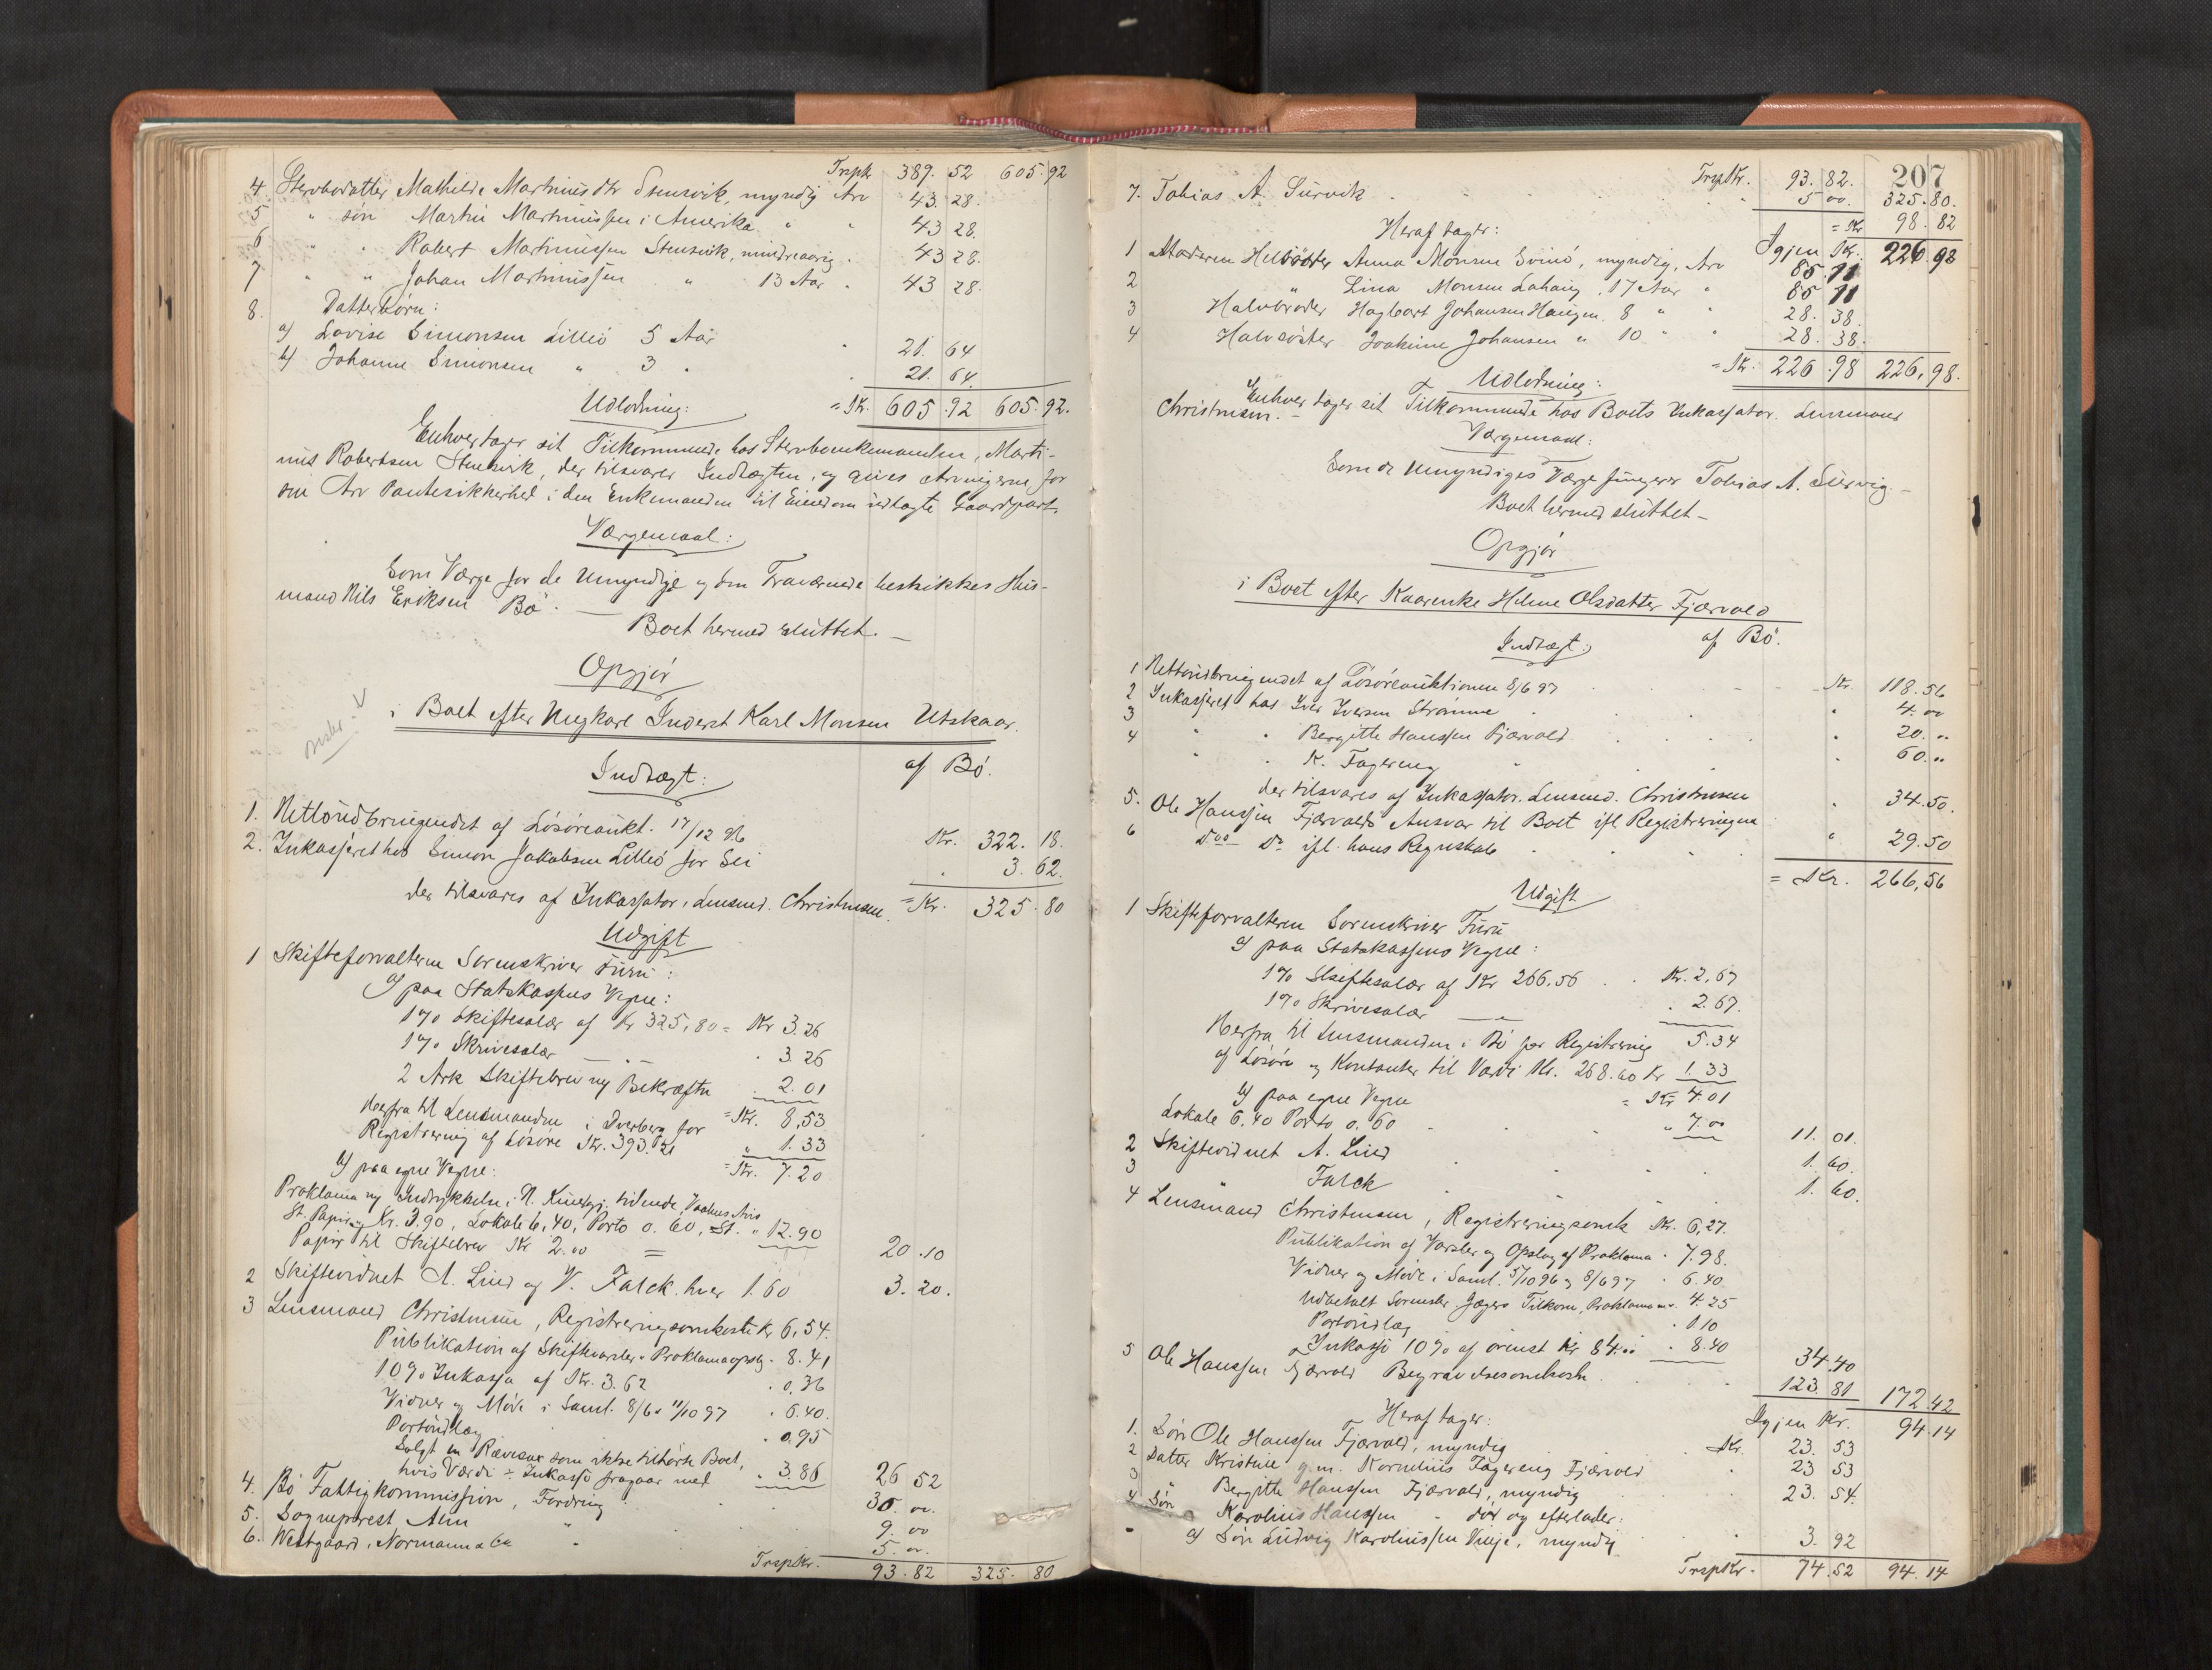 Trspk 389. 52 605.92
4. Stervbodatter Mathilde Martinusdtr Stensvik, myndig Arv 43 28.
5 " søn Martin Martinussen i Amerika " " 43 28.
6 " " Robert Martinussen Stensvik, mindreaarig " 43 28.
7 " " Johan Martinussen " 13 Aar " 43 28.
8. Datterbørn:
a) Lovise Simonsen Lilleö 5 Aar " 21. 64
b) Johanne Simonsen " 3 " " 21. 64.
= Kr. 605.92 605.92.
Udlodning:
Enhver tager sit Tilkommende hos Stervboenkemanden, Marti-
nus Robertsen Stensvik, der tilsvarer Indtægten, og gives Arvingerne for
sin Arv Pantesikkerhed i den Enkemanden til Eiendom udlagte Gaardpart.
Værgemaal:
Som Værge for de Umyndige og den Fraværende beskikkes Hus-
mand Nils Eriksen Bö. —
Boet hermed sluttet. —
Opgjör
i Boet efter Ungkarl Inderst Karl Monsen Utskaar
af Bö.
Indtægt:
1. Nettoudbringendet af Lösöreaukt. 17/12 96 Kr. 322. 18.
2. Inkasseret hos Simon Jakobsen Lilleö for Sei " 3. 62.
der tilsvares af Inkassator, Lensmd. Christensen = Kr. 325. 80
Udgift
1 Skifteforvalteren Sorenskriver Furu:
a) paa Statskassens Vegne:
1% Skiftesalær af Kr 325,80 = Kr 3.26
1% Skrivesalær — " — " 3. 26
2 Ark Skiftebrev og Bekræftn " 2. 01
= Kr. 8,53
Herfra til Lensmanden i Dverberg for
Registrering af Lösöre Kr. 393.21 " 1. 33
= Kr. 7.20
b) paa egne Vegne:
Proklama og Indrykkelse i N. Kundgj. tidende, Vaalnes Avis
St. Papir Kr. 3.90, Lokale 6,40, Porto 0.60, St. " 12.90
Papir til Skiftebrev Kr 2.00 = 20.10
2 Skiftevidnet A. Lind og V. Falck hver 1.60 3. 20.
3 Lensmand Christensen, Registreringsomkostn Kr 6,54.
Publikation af Skiftevarsler & Proklamaopslg. 8. 41
10% Inkasso af Kr. 3.62 " 0,36
Vidner og Møde i Saml. 8/6 & 11/10 97 " 6.40.
Portoudlæg " 0,95
Solgt en Rævesax som ikke tilhørte Boet,
hvis Værdi ÷ Inkasso fragaar med " 3.86 26 52
4. Bö Fattigkommission, Fordring 30 00.
5. Sogneprest Alm " 9. 00
6. Westgaard, Normann & Co " 5. 00.
TrspKr. 93.82 325. 80
207
TrspKr. 93. 82. 325.80.
7. Tobias A. Survik 5 00.
= Kr 98. 82
Heraf tager: Igjen Kr. 226.98
1 Moderen Helsöster Anna Monsen Svinö, myndig, Arv 85. 11
2 " Lina Monsen Lahaug, 17 Aar " 85 11
3 Halvbroder Hagbart Johansen Haugen 8 " " 28. 38.
4 Halvsöster Joakime Johansen " 10 " " 28. 38.
= Kr. 226.98 226,98.
Udlodning:
Enhver tager sit Tilkommende hos Boets Inkassator. Lensmand
Christensen. —
Værgemaal:
Som de Umyndiges Værge fungerer Tobias A. Survig. —
Boet hermed sluttet —
Opgjör
i Boet efter Kaarenke Helene Olsdatter Fjærvold
af Bö.
Indtægt:
1 Nettoudbringendet af Lösöreauktionen 8/6 97 Kr. 118.56
2 Inkasseret hos Iver Iversen Strömme " 4. 00
3 " " Bergitte Hanssen Fjærvold " 20. "
4 " " K. Fagereng " 60. "
der tilsvares af Inkassator. Lensmd. Christensen
5. Ole Hanssen Fjærvolds Ansvar til Boet ifl Registreringen " 34.50.
6 Dos Do ifl. hans Regnskab " 29.50
= Kr. 266,56
Udgift
1 Skifteforvalteren Sorenskriver Furu
a) paa Statskassens Vegne:
1% Skiftesalær af Kr 266.56 Kr. 2,67
1% Skrivesalær — " — " 2.67.
5.34
Herfra til Lensmanden i Bö for Registrering
af Lösöre og Kontanter til Værdi Kr. 268.60 Kr 1.33
= Kr 4.01
b) paa egne Vegne
Lokale 6.40 Porto 0.60 " 7.00 11. 01.
2 Skiftevidnet A. Lind 1. 60.
3 " Falck 1. 60.
4 Lensmand Christensen, Registreringsomk Kr. 6,27.
Publikation af Varsler og Opslag af Proklama " 7.98.
Vidner og Møde i Saml. 5/10 96 og 8/6 97 " 6.40
Udbetalt Sorenskr. Jægers Tilkom. Proklama m.v. 4.25
Portoudlæg " 1.10
Inkasso 10% af ovenst Kr 84.00 " 8.40 34.40
5 Ole Hanssen Fjærvold Begravelsesomkostn. 123.81 172.42
Heraf tager: Igjen Kr. 94.14
1. Sön Ole Hanssen Fjærvold, myndig Kr. 23. 53
2 Datter Kristine g.m. Kornelius Fagereng Fjærvold " 23 53
3 " Bergitte Hanssen Fjærvold, myndig 23. 54.
4 Sön Karolius Hanssen " död og efterlader:
a) Sön Ludvig Karoliussen Vinje, myndig " 3. 92
TrspKr. 74.52 94.14